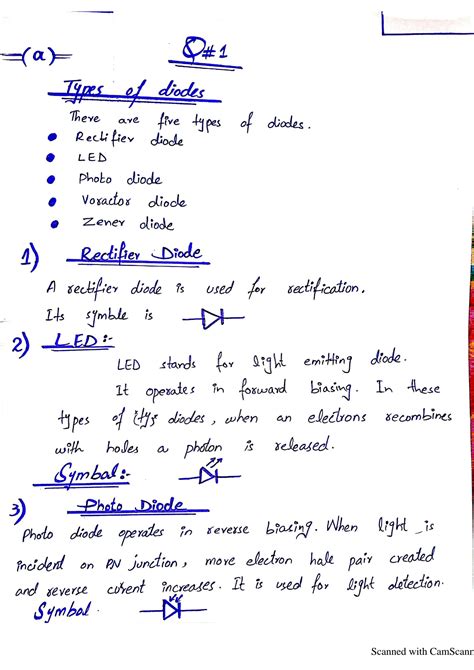 (a) Q#1
Types of diodes
There are five types of diodes.
• Rectifier diode
• LED
• Photo diode
• Voractor diode
• Zener diode
1) Rectifier Diode
A rectifier diode is used for rectification.
Its symble is
2) LED:-
LED stands for light emitting diode.
It operates in forward biasing. In these
types of diodes, when an electrons recombines
with holes a photon is released.
Symbol:-
3) Photo Diode
Photo diode operates in reverse biasing. When light is
incident on PN junction, more electron hale pair created
and reverse curent increases. It is used for light detection.
Symbol.
Scanned with CamScanr